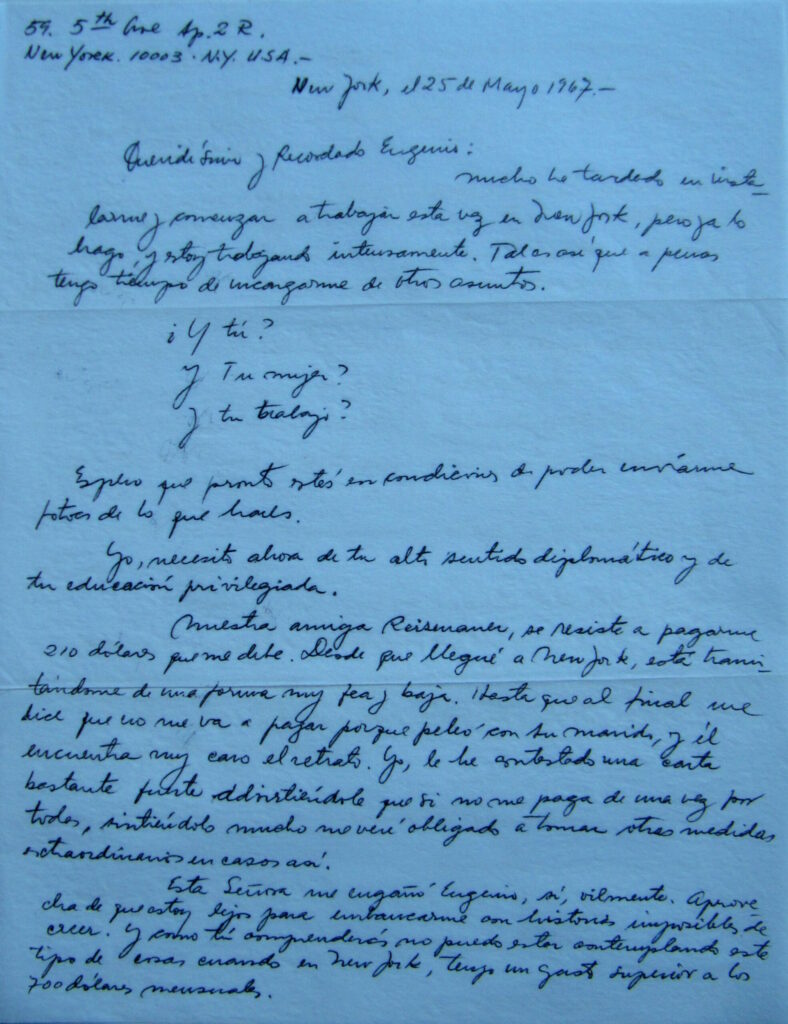 59. 5th Ave Ap. 2 R.
New York. 10003 · N.Y. USA.-
New York, el 25 de Mayo 1967.-
Queridísimo y Recordado Eugenio:
mucho he tardado en insta-
larme y comenzar a trabajar esta vez en New York, pero ya lo
hago, y estoy trabajando intensamente. Tal es así que a penas
tengo tiempo de encargarme de otros asuntos.
¿Y tú?
y Tu mujer?
y tu trabajo?
Espero que pronto estés en condiciones de poder enviarme
fotos de lo que haces.
Yo, necesito ahora de tu alto sentido diplomático y de
tu educación privilegiada.
Nuestra amiga Reisemaner, se resiste a pagarme
210 dólares que me debe. Desde que llegué a New York, está trami-
tándome de una forma muy fea y baja. Hasta que al final me
dice que no me va a pagar porque peleó con su marido, y él
encuentra muy caro el retrato. Yo, le he contestado una carta
bastante fuerte addvirtiéndole que si no me paga de una vez por
todas, sintiéndolo mucho me veré obligado a tomar otras medidas
extraordinarios en casos así.
Esta Señora me engañó Eugenio, sí, vilmente. Aprove
cha de que estoy lejos para embaucarme con historias imposibles de
creer. Y como tú comprenderás no puedo estar contemplando este
tipo de cosas cuando en New York, tengo un gasto superior a los
700 dólares mensuales.